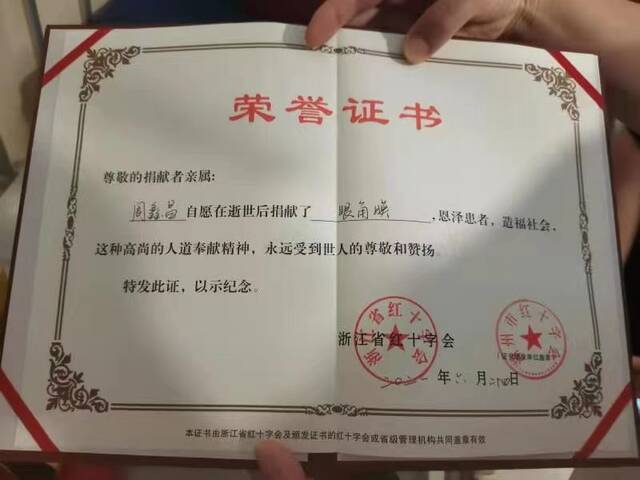 荣誉证书
尊敬的捐献者亲属:
周森昌自愿在逝世后捐献了 眼角膜 ,恩泽患者,造福社会,
这种高尚的人道奉献精神,永远受到世人的尊敬和赞扬。
特发此证,以示纪念。
浙江省红十字会
浙江省红十字会
州市红十字会
年六月二四日
本证书由浙江省红十字会及颁发证书的红十字会或省级管理机构共同盖章有效